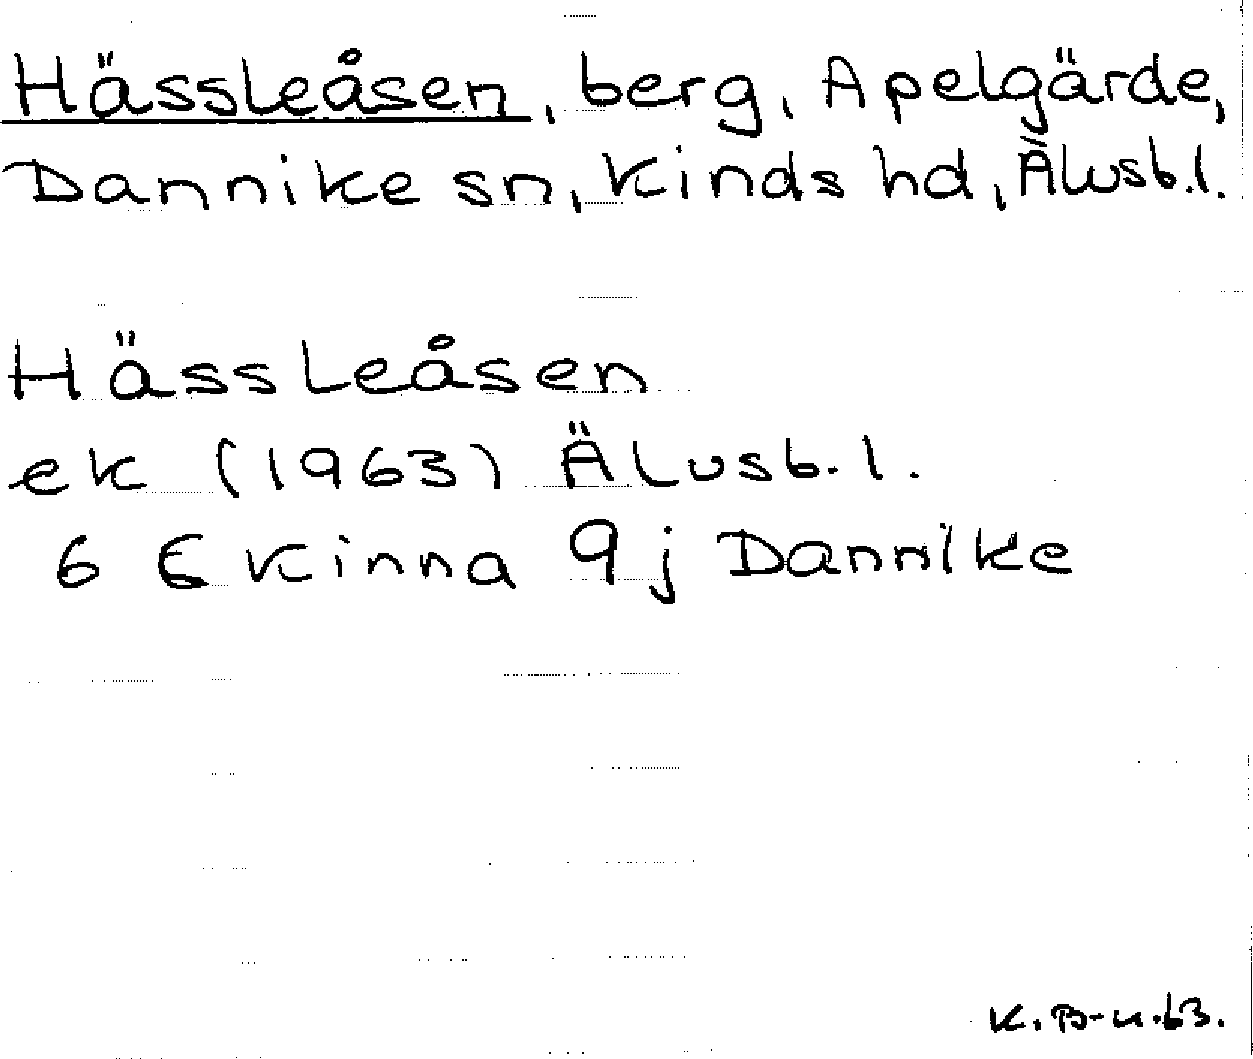 Hässleåsen, berg, Apelgärde,
Dannike sn, Kinds hd, Älvsb.l.
Hässleåsen
ek (1963) Älvsb.l.
6 C Kinna 9j Dannike
K.B-n.63.